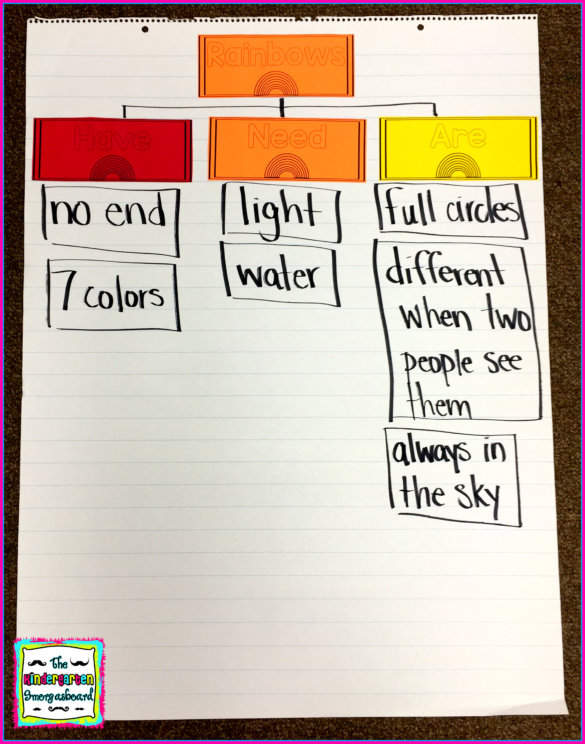 Rainbows
Have
Need
Are
no end
7 colors
light
water
full circles
different
when two
people see
them
always in
the sky
The
Kindergarten
Smorgasboard